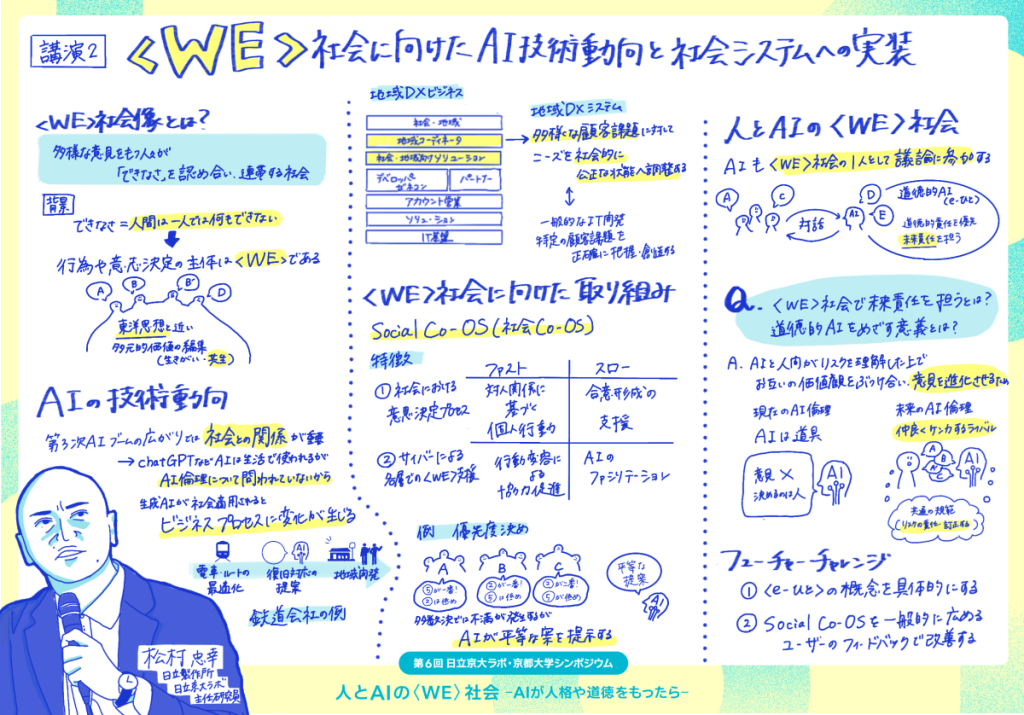 講演2
<WE>社会に向けたAI技術動向と社会システムへの実装
<WE>社会像とは?
多様な意見をもつ人々が
「できなさ」を認め合い、連帯する社会
背景
できなさ=人間は一人では何もできない
行為や意志決定の主体は<WE>である
A
B
B'
D
東洋思想と近い
多元的価値の編集
(生きがい・共生)
AIの技術動向
第3次AIブームの広がりでは社会との関係が重要
→chatGPTなどAIは生活で使われるが
AI倫理について問われていないから
生成AIが社会適用されると
ビジネスプロセスに変化が生じる
電車・ルートの
最適化
AI
復旧対応の
提案
地域開発
鉄道会社の例
松村忠幸
日立製作所
日立京大ラボ
主任研究員
地域DXビジネス
社会・地域
地域コーディネータ
社会・地域向けソリューション
デベロッパー
ゼネコン
パートナー
アカウント営業
ソリューション
IT基盤
地域DXシステム
多様な顧客課題に対して
ニーズを社会的に
公正な状態へ調整する
一般的なIT開発
特定の顧客課題を
正確に把握・創造する
<WE>社会に向けた取り組み
Social Co-OS(社会Co-OS)
特徴
ファスト
スロー
①社会における
意思決定プロセス
対人関係に
基づく
個人行動
合意形成の
支援
②サイバーによる
各層での<WE>支援
行動変容に
よる
協力促進
AIの
ファシリテーション
例 優先度決め
A
⑤が一番!
②は低め
B
②が一番!
⑤は低め
C
②が一番!
⑤が低め
平等な
提案
AI
多数決では不満が発生するが
AIが平等な案を提示する
人とAIの<WE>社会
AIも<WE>社会の1人として議論に参加する
A
C
D
B
対話
AI
E
道徳的AI
(e-ひと)
道徳的責任を優先
未来責任を担う
Q. <WE>社会で未来責任を担うとは?
道徳的AIをめざす意義とは?
A. AIと人間がリスクを理解した上で
お互いの価値観をぶつけ合い、意見を進化させるため
現在のAI倫理
AIは道具
意見×
決めるのは人
AI
未来のAI倫理
仲良くケンカするライバル
A
B
A'
C
AI
共通の規範
(リスクの責任・訂正する)
フューチャーチャレンジ
①<e-ひと>の概念を具体的にする
②Social Co-OSを一般的に広める
ユーザーのフィードバックで改善する
第6回 日立京大ラボ・京都大学シンポジウム
人とAIの〈WE〉社会 –AIが人格や道徳をもったら–